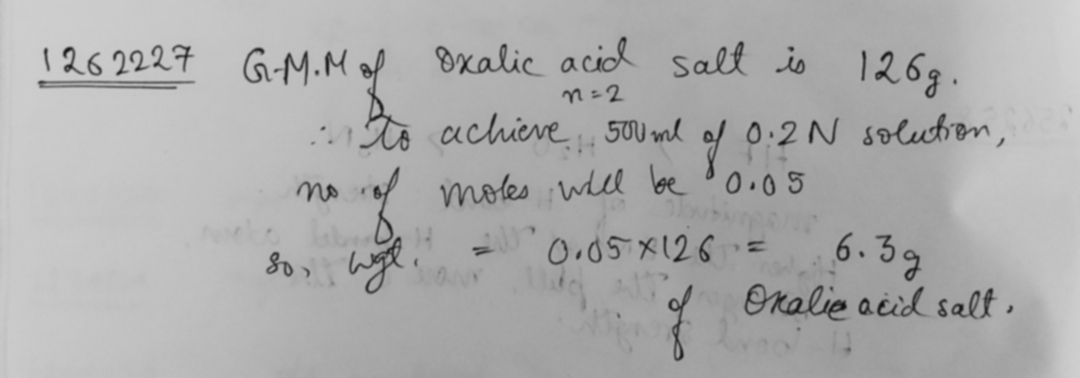 1262227 G.M.M of Oxalic acid salt is 126g.
n=2
∴ To achieve 500ml of 0.2N solution,
no of moles will be 0.05
so, wgt. = 0.05×126 = 6.3g
of Oxalic acid salt.